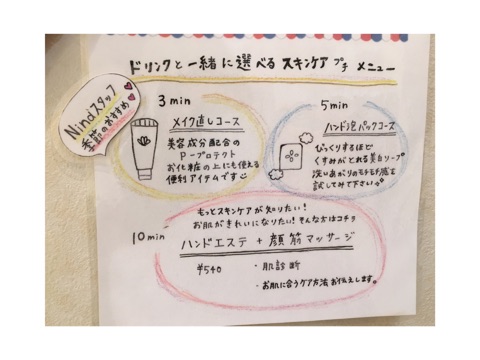 ドリンクと一緒に選べるスキンケアプチメニュー
Nindスタッフ
季節のおすすめ
3min
メイク直しコース
美容成分配合の
P-プロテクト
お化粧の上にも使える
便利アイテムです
5min
ハンド泡パックコース
びっくりするほど
くすみがとれる美白ソープ
洗いあがりのモチモチ感を
試してみて下さい
もっとスキンケアが知りたい!
お肌がきれいになりたい!そんな方はコチラ
10min
ハンドエステ+顔筋マッサージ
¥540
・肌診断
・お肌に合うケア方法お伝えします。